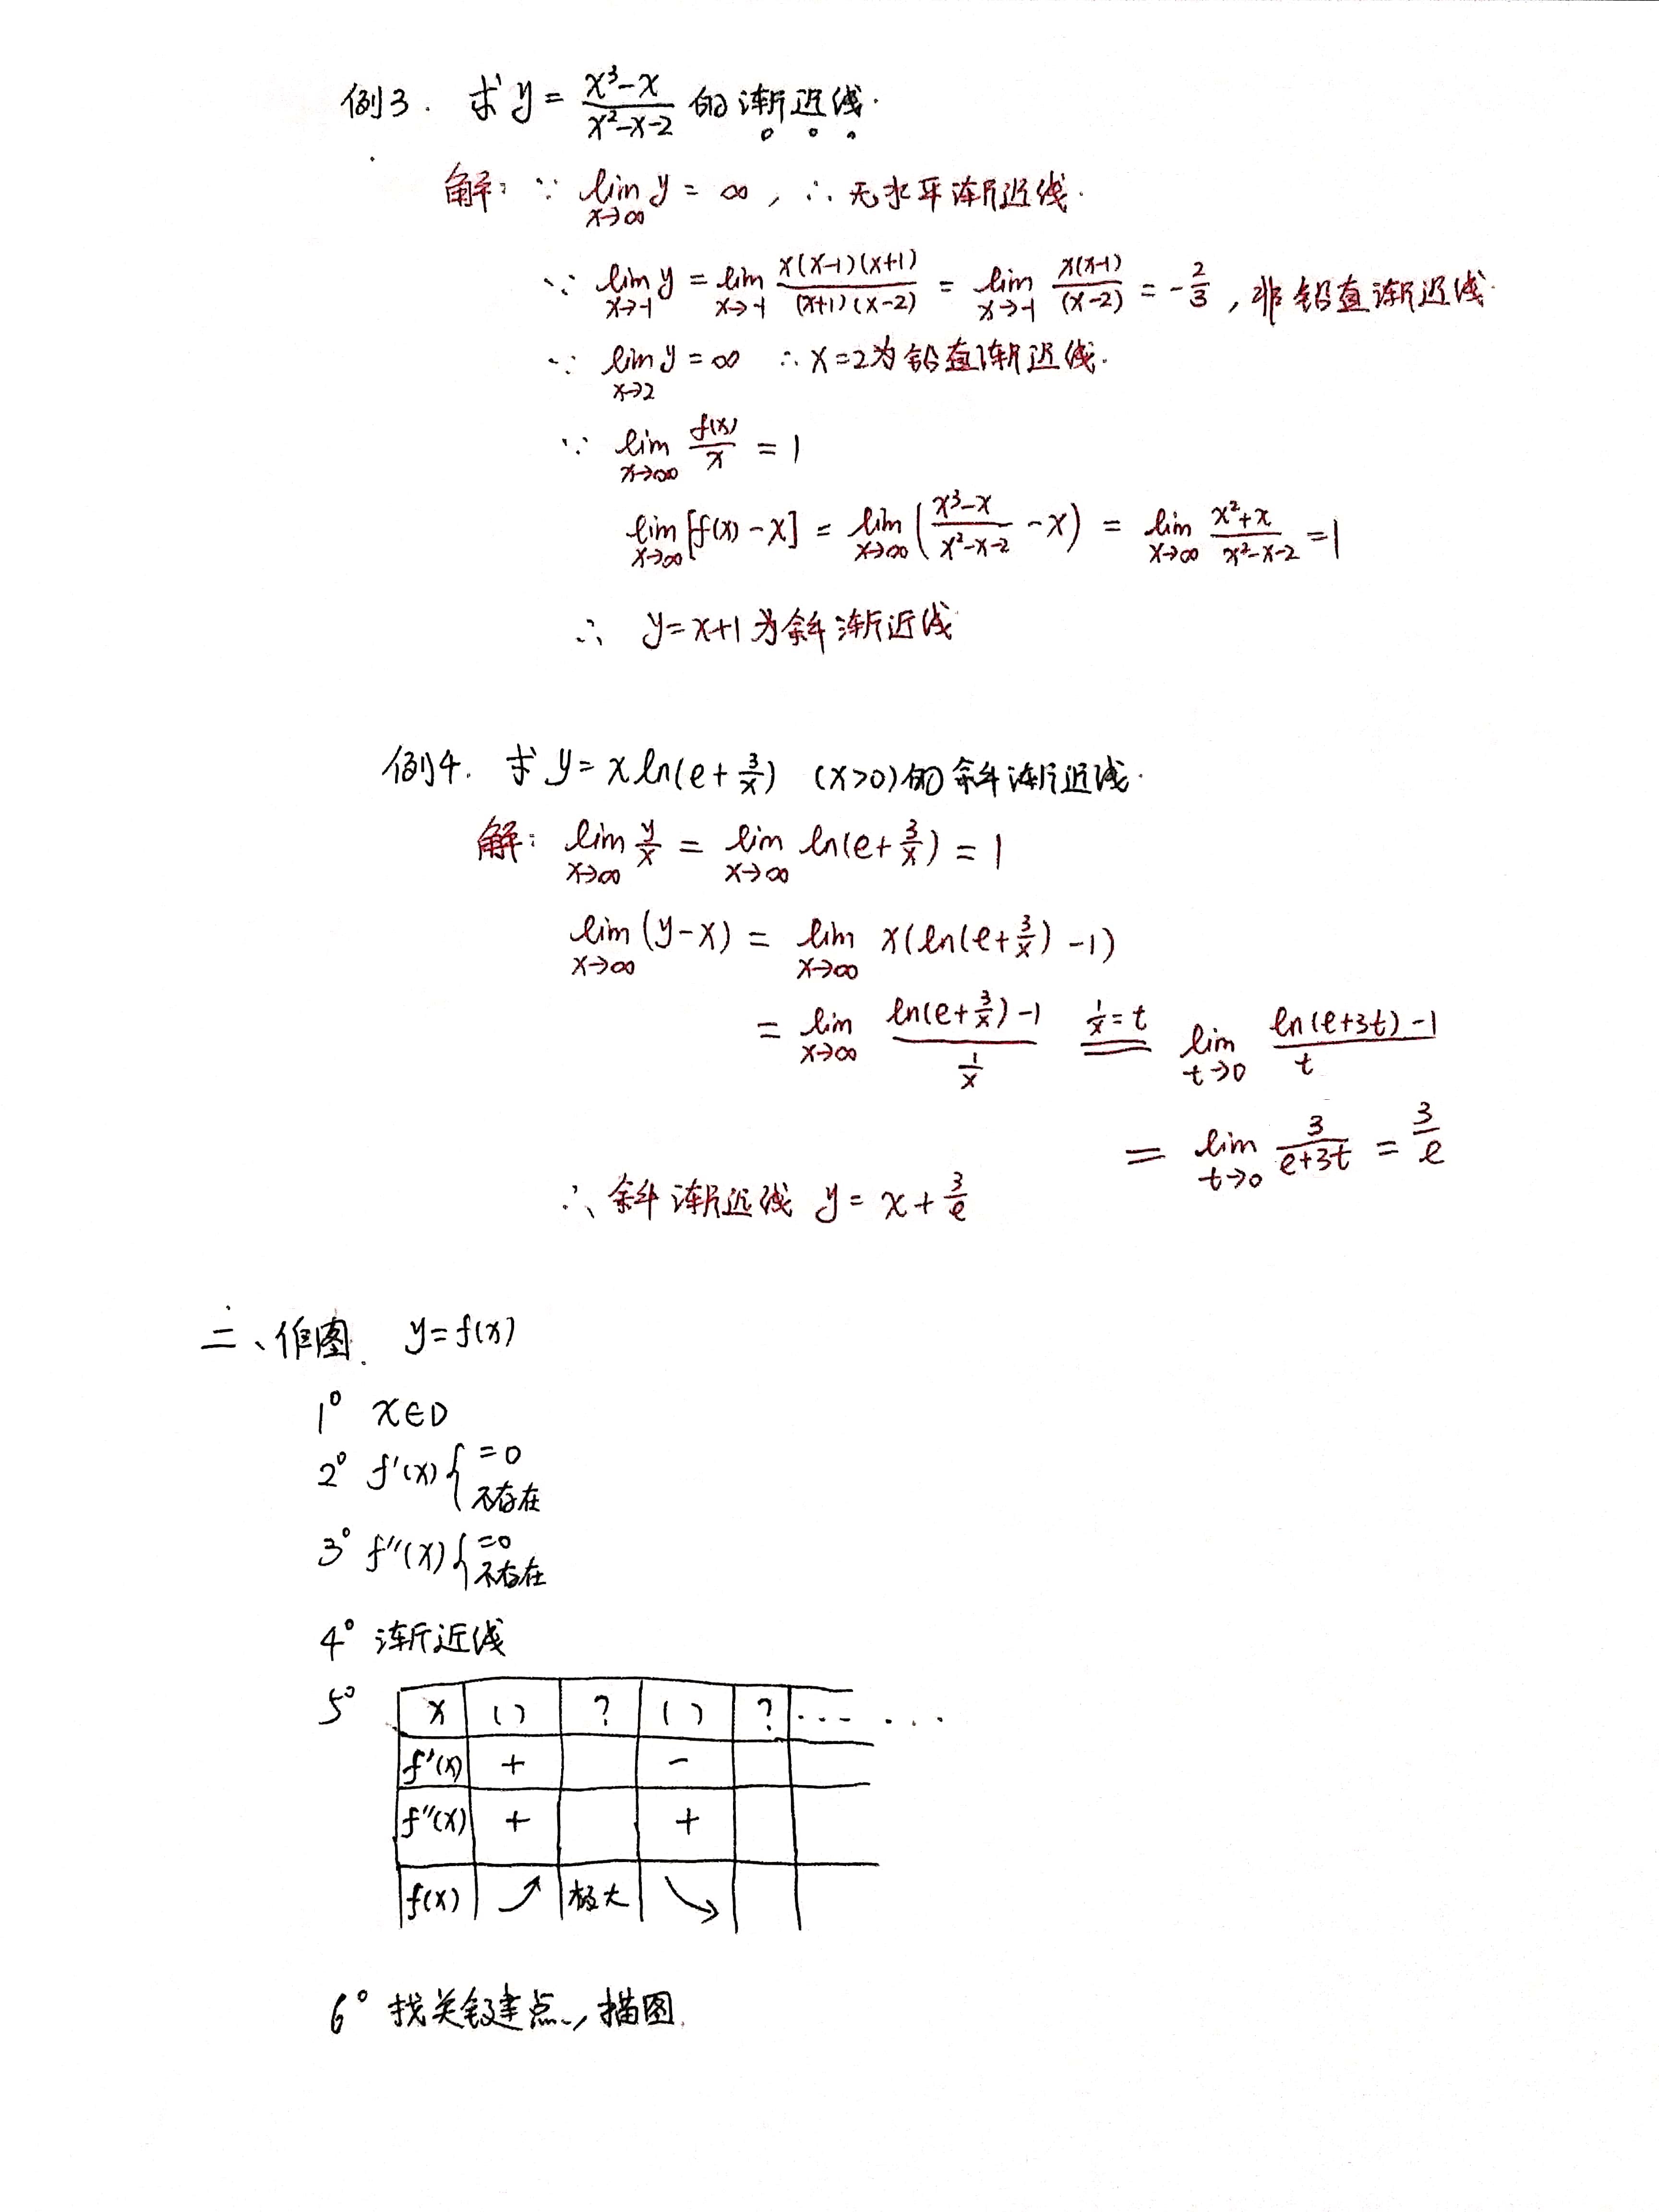 例3. 求 y = (x³-x)/(x²-x-2) 的渐近线.
解: ∵ lim_{x→∞} y = ∞, ∴ 无水平渐近线.
∵ lim_{x→-1} y = lim_{x→-1} x(x-1)(x+1)/((x+1)(x-2)) = lim_{x→-1} x(x-1)/(x-2) = -2/3, 非铅直渐近线.
∵ lim_{x→2} y = ∞ ∴ x=2为铅直渐近线.
∵ lim_{x→∞} f(x)/x = 1
lim_{x→∞} [f(x)-x] = lim_{x→∞} ((x³-x)/(x²-x-2) - x) = lim_{x→∞} (x²+x)/(x²-x-2) = 1
∴ y=x+1为斜渐近线
例4. 求 y = x ln(e+3/x) (x>0)的斜渐近线.
解: lim_{x→∞} y/x = lim_{x→∞} ln(e+3/x) = 1
lim_{x→∞} (y-x) = lim_{x→∞} x(ln(e+3/x)-1)
= lim_{x→∞} (ln(e+3/x)-1)/(1/x) ==(1/x=t)== lim_{t→0} (ln(e+3t)-1)/t
= lim_{t→0} 3/(e+3t) = 3/e
∴ 斜渐近线 y = x+3/e
二、作图. y=f(x)
1° x∈D
2° f'(x) { =0
不存在
3° f''(x) { =0
不存在
4° 渐近线
5° x ( ) ? ( ) ? ... ...
f'(x) + -
f''(x) + +
f(x) ↗ 极大 ↘
6° 找关键点, 描图.